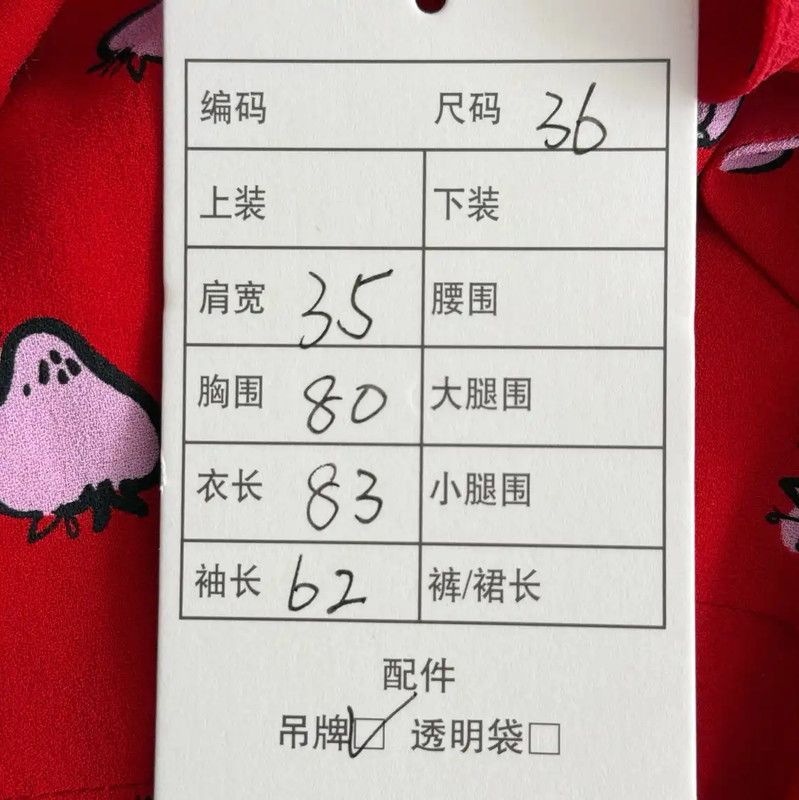 编码 尺码 36
上装 下装
肩宽 35 腰围
胸围 80 大腿围
衣长 83 小腿围
袖长 62 裤/裙长
配件
吊牌☑ 透明袋□